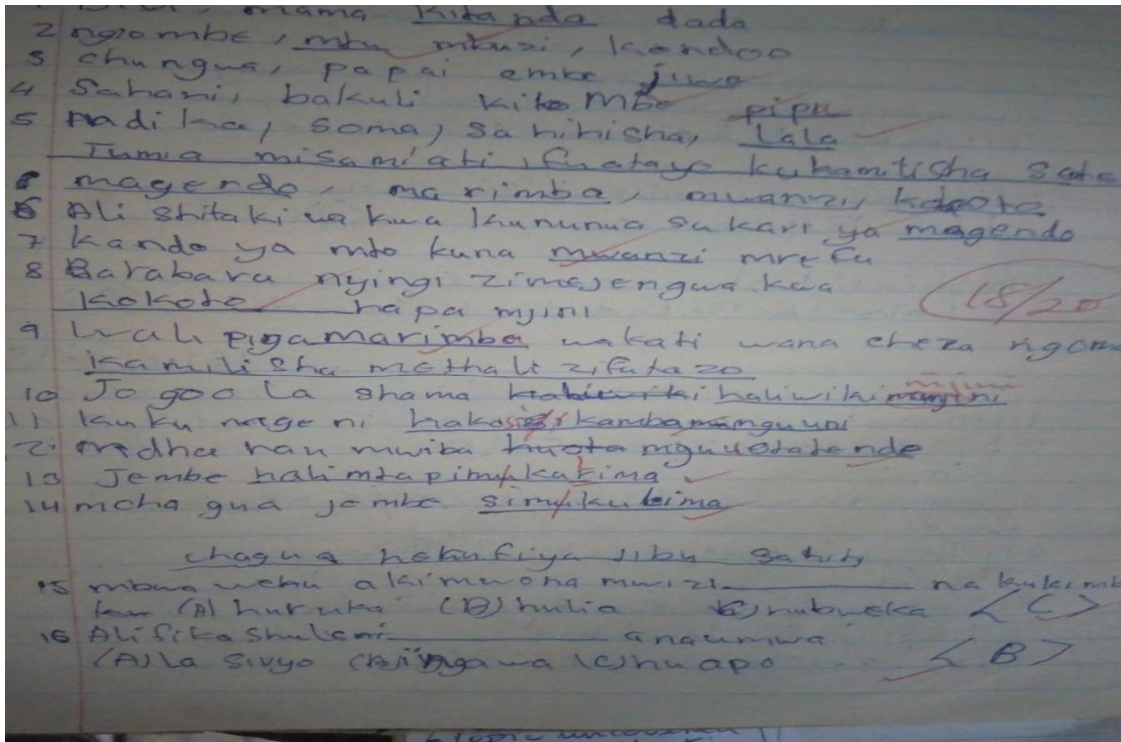 mama kitanda dada
2 ngombe, mbu mbuzi, kondoo
3 chungwa, papai embe jiwe
4 Sahani, bakuli kikombe pipa
5 Andika, soma, sahihisha, Lala
Tumia misamiati ifuatayo kukamilisha
magendo, marimba, mwanzi, kokoto
6 Ali shitakiwa kwa kununua sukari ya magendo
7 kando ya mto kuna mwanzi mrefu
8 Barabara nyingi zimejengwa kwa
kokoto hapa mjini
18/20
9 Wali piga marimba wakati wana cheza ngoma
kamilisha methali zifutazo
10 Jo goo la shamba haliwiki mjini
11 kuku mgeni hakosi kambamanguuni
2. mwiba huota
13 Jembe halimtapimf katima
14 mcha gua jembe simf kulima
chagua hekufiya jibu sahihi
15 mbwa wetu akimwona mwizi ______ na
(A) huruka (B) hulia (C) hubweka <C>
16 Alifika Shuleni ______ anaumwa
(A) la sivyo (B) ingawa (C) huapo <B>